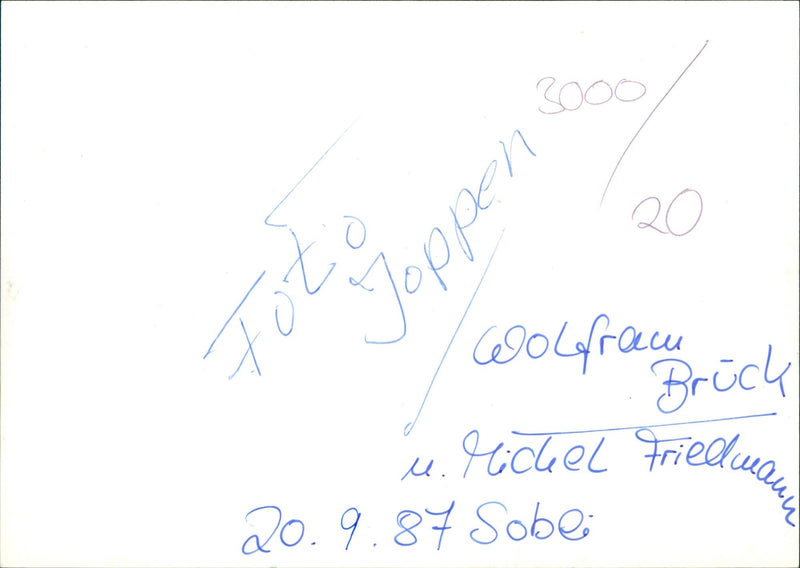 3000/
20
Foto
Joppen
Wolfram
Brück
u. Michel Friedmann
20. 9. 87 Sobli